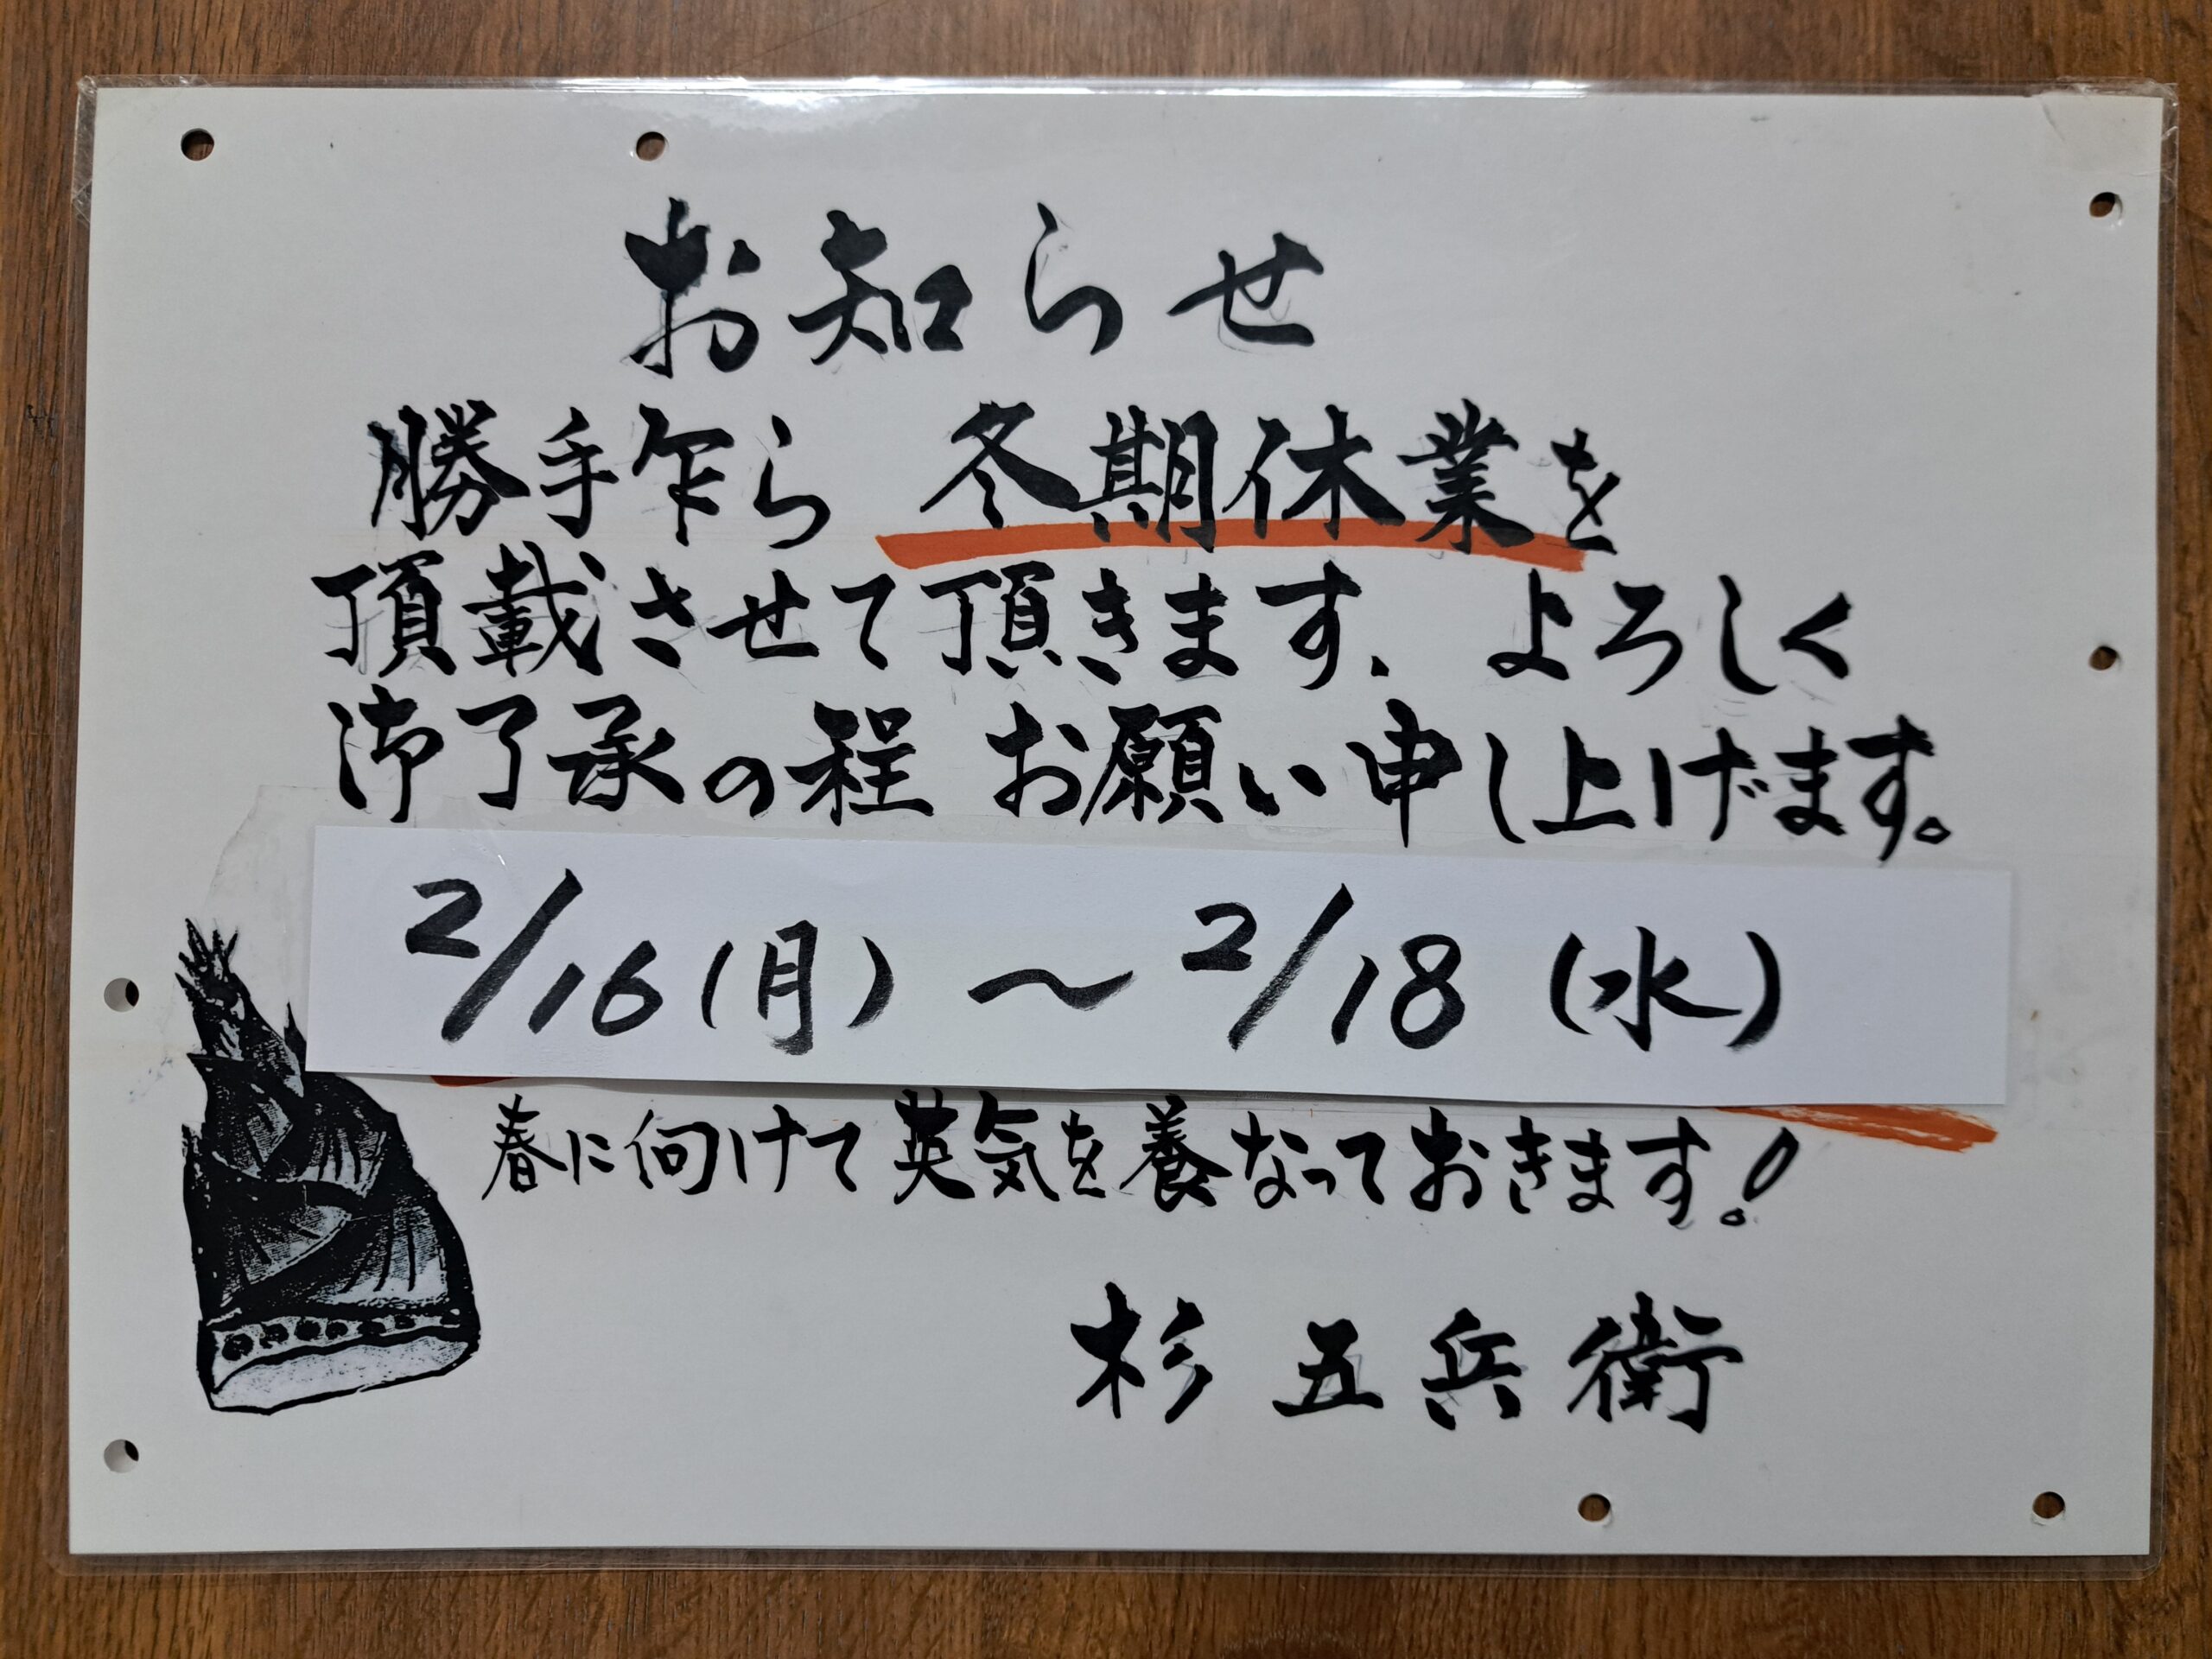 お知らせ
勝手乍ら 冬期休業を
頂載させて頂きます、よろしく
御了承の程 お願い申し上げます。
2/16(月)～2/18(水)
春に向けて英気を養なっておきます!
杉五兵衛